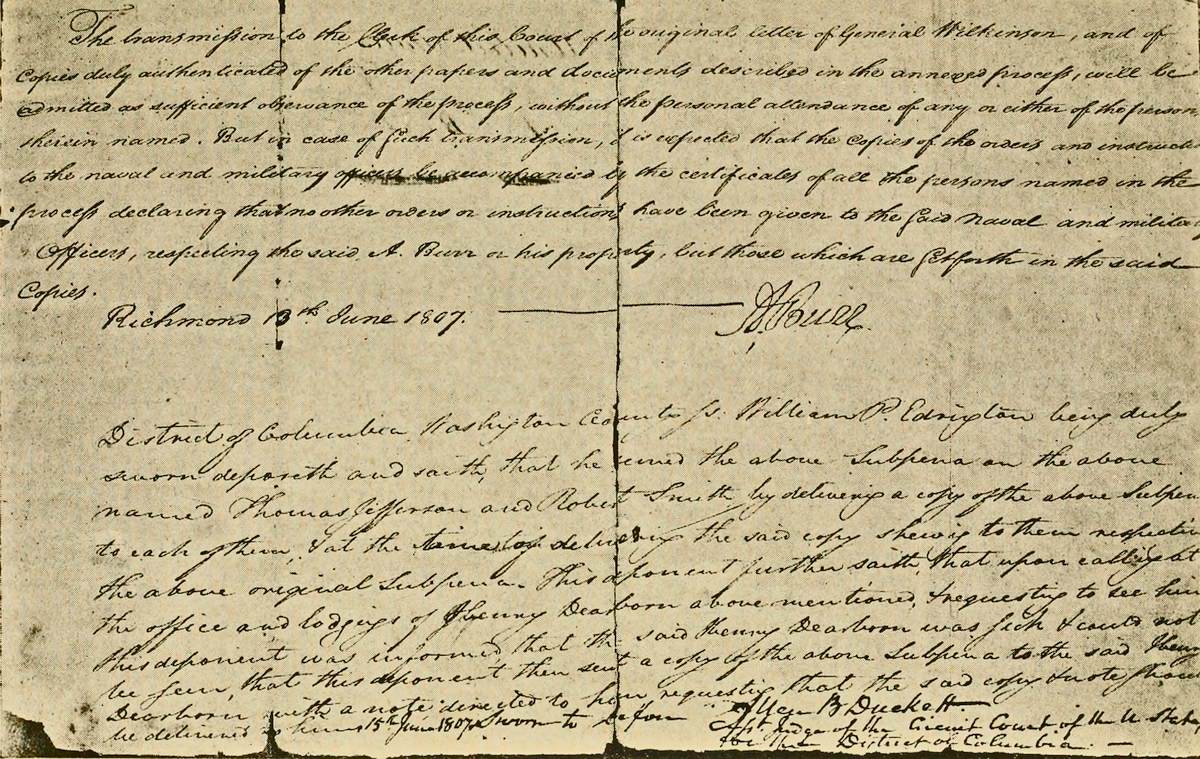 The transmission to the Clerk of this Court of the original letter of General Wilkinson, and of
Copies duly authenticated of the other papers and documents described in the annexed process, will be
admitted as sufficient observance of the process, without the personal attendance of any or either of the persons
therein named. But in case of such transmission, it is expected that the copies of the orders and instructi
to the naval and military officers be accompanied by the certificates of all the persons named in the
process declaring that no other orders or instructions have been given to the said naval and militar
Officers, respecting the said A. Burr or his property, but those which are set forth in the said
Copies.
Richmond 13th June 1807. A Burr
District of Columbia Washington County Ss. William P. Edrington being duly
sworn deposeth and saith, that he served the above Subpena on the above
named Thomas Jefferson and Robert Smith by delivering a copy of the above Subpen
to each of them, & at the time of delivering the said copy shewing to them respective
the above original Subpena. This deponent further saith, that upon calling at
the office and lodgings of Henry Dearborn above mentioned, & requesting to see him
this deponent was informed that the said Henry Dearborn was sick & could not
be seen, that this deponent then sent a copy of the above Subpena to the said Henry
Dearborn with a note directed to him requesting that the said copy & note should
be delivered to him 15th June 1807. Sworn to before Allen B Duckett
Asst. Judge of the Circuit Court of the U. States
for the District of Columbia.